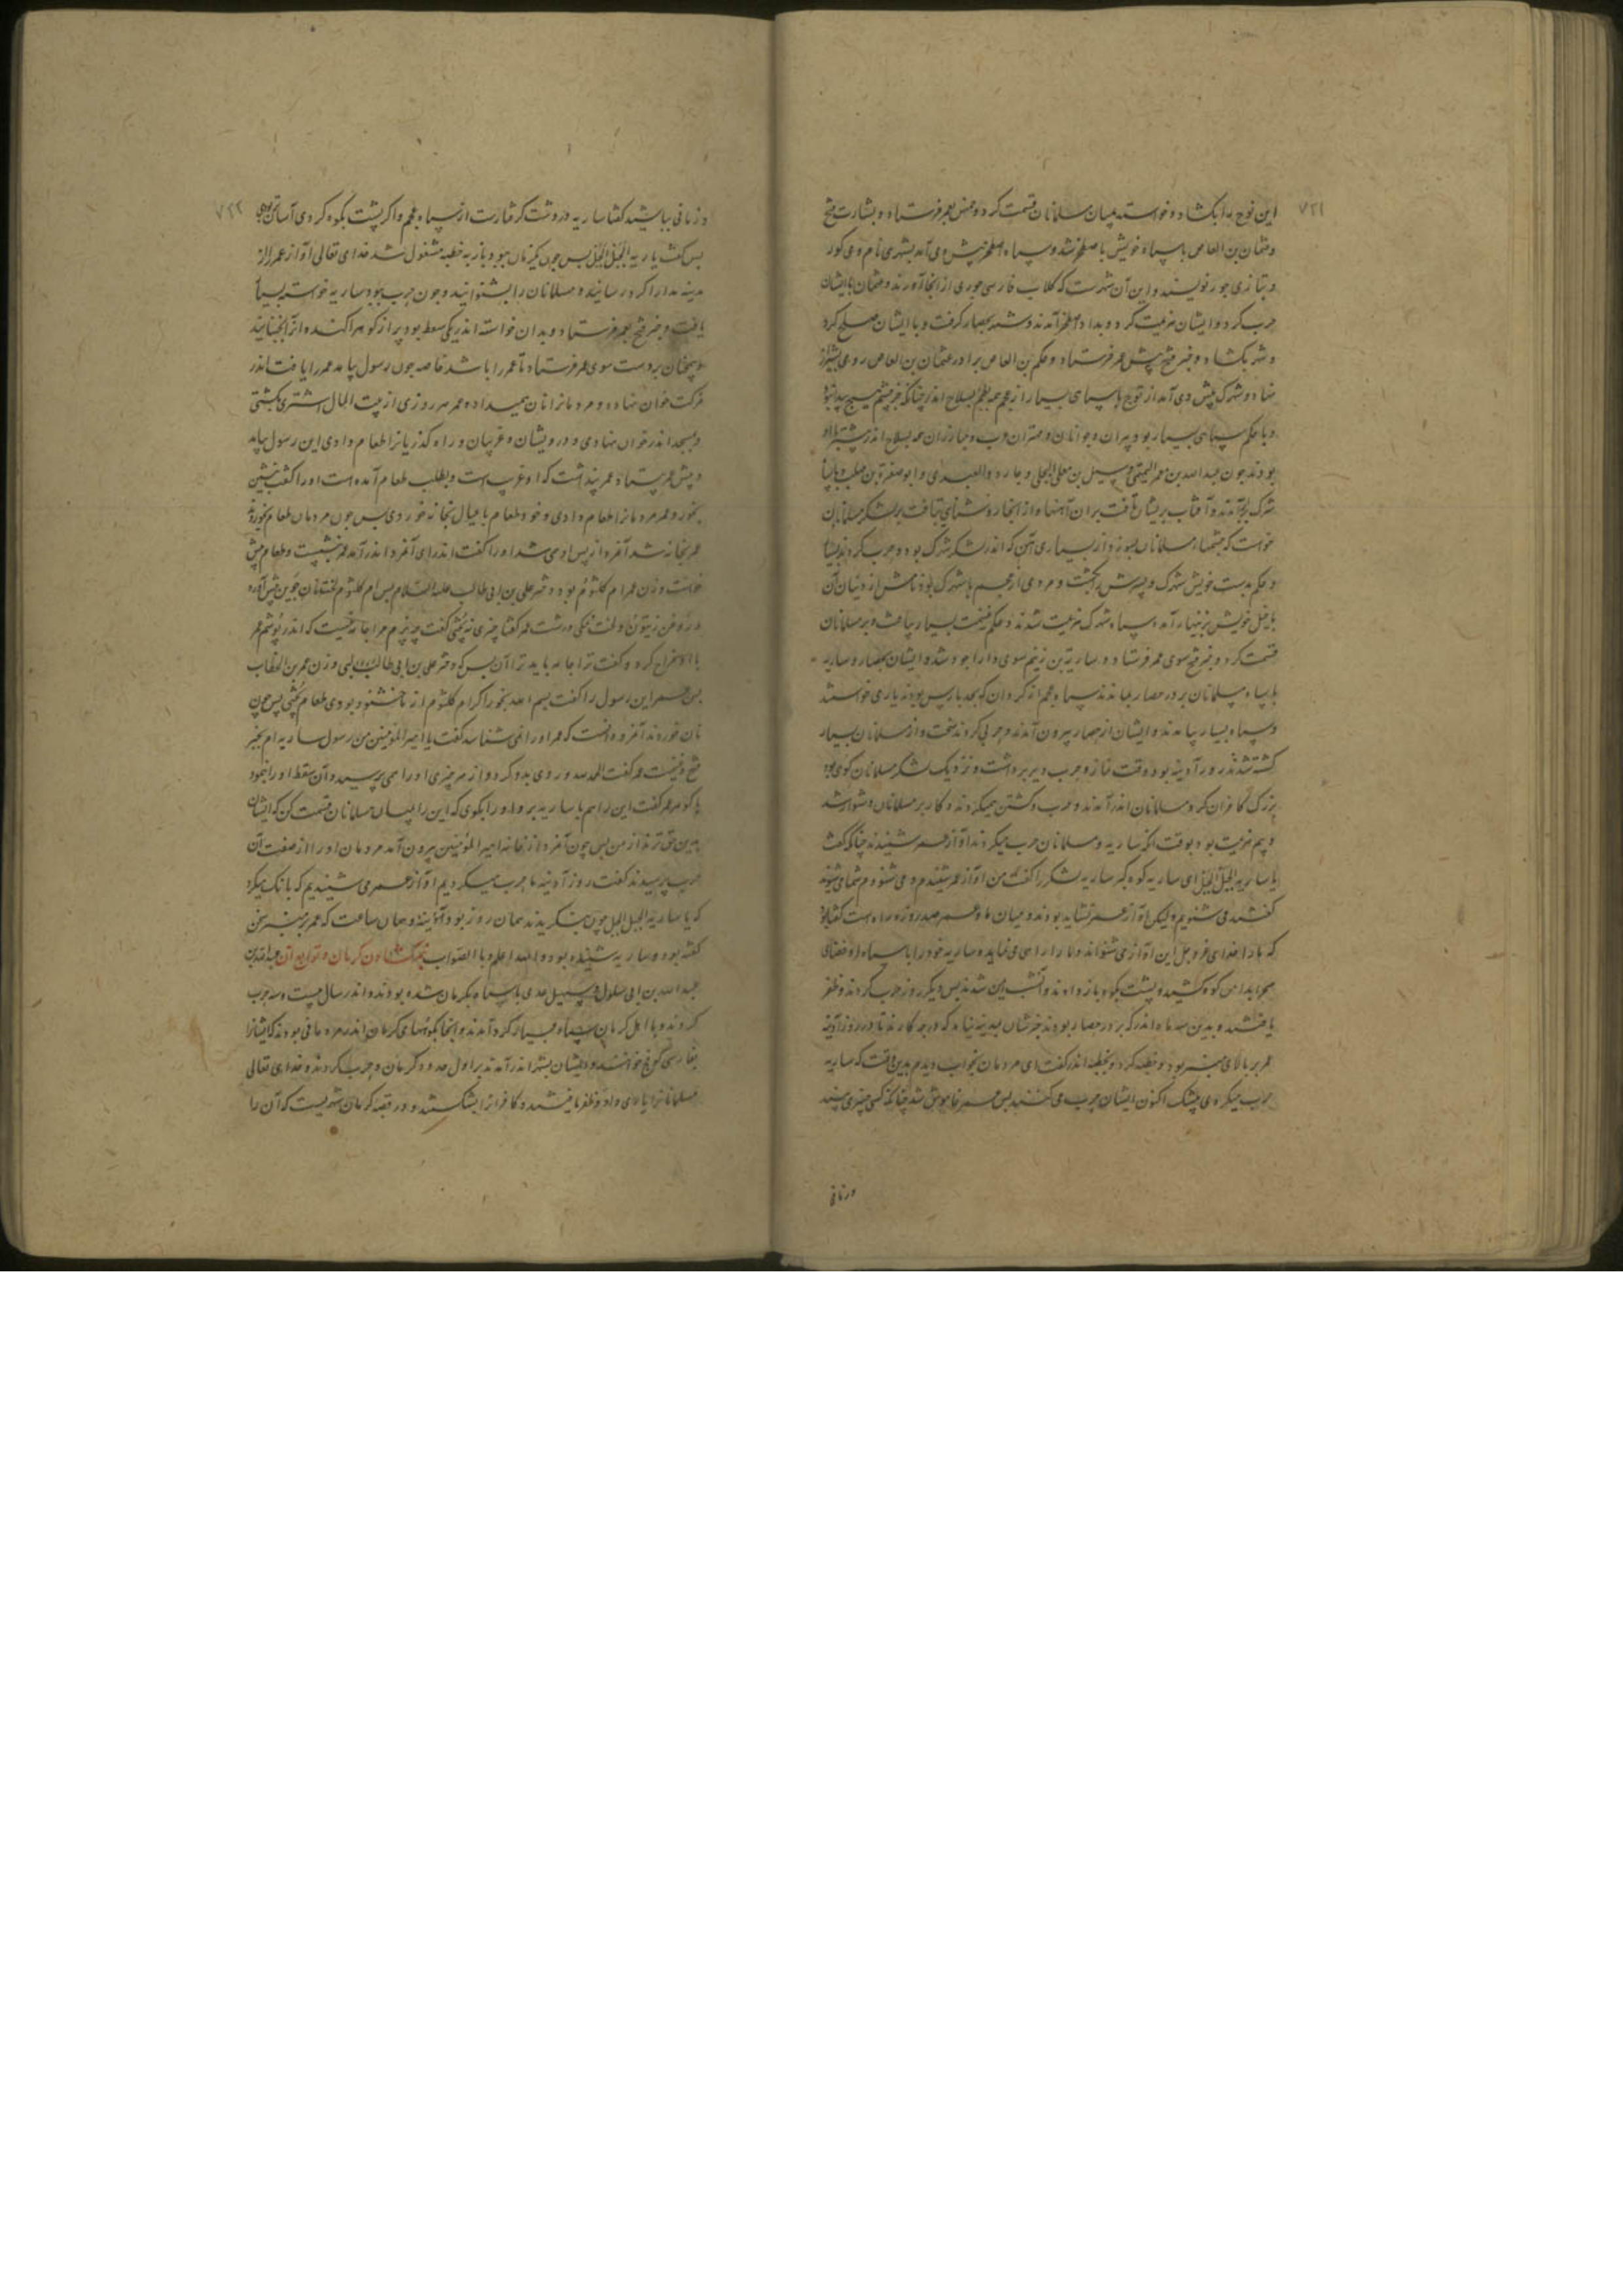 ۷۲۱
این توج را بکشاد و خواسته میان مسلمانان قسمت کرد و خمس بعمر فرستاد و بشارت فتح
و عثمان بن العاص با سپاه خویش باصطخر شد و سپاه اصطخر پیش وی آمد بشهری نام وی کور
و بتازی جور نویسند و این آن شهرست که کلاب فارسی جوری از انجا آورند و عثمان با ایشان
حرب کرد و ایشان هزیمت کرد و بدر اصطخر آمدند و شهر بحصار کرفت و با ایشان صلح کرد
و شهر بکشاد و خبر فتح پیش عمر فرستاد و حکم بن العاص برادر عثمان بن العاص روی بشیراز
نهاد و شهرک پیش وی آمد از توج با سپاهی بسیار از عجم همه بسلاح اندر چنانکه جز چشم هیچ پیدا نبود
و با حکم سپاهی بسیار بود پیران و جوانان و مهتران عرب و مبارزان همه بسلاح اندر
بودند چون عبد الله بن معمر التیمی و سهیل بن معلی البجلی و جارود العبدی و ابو صفره
شهرک آمدند و آفتاب بریشان تافت بران آهنها و از انجا روشنای بتافت بر لشکر مسلمانان
خواست که چشمهاء مسلمانان بسوزد از بسیاری آهن که اندر لشکر شهرک بود و حرب کردند بسیار
و حکم بدست خویش شهرک و پسرش بکشت و مردی از عجم با شهرک بود نامش
با خیل خویش بزینهار آمد سپاه شهرک هزیمت شدند و حکم غنیمت بسیار یافت و بر مسلمانان
قسمت کرد و خبر فتح سوی عمر فرستاد و ساریة بن زنیم سوی دارابجرد شد و ایشان بحصار و ساریه
با سپاه مسلمانان بر در حصار بماندند سپاه عجم از کردان که بحد پارس بودند یاری خواستند
و سپاه بسیار بیامدند و ایشان از حصار بیرون آمدند و حربی کردند سخت و از مسلمانان بسیار
کشته شدند روز آدینه بود وقت نماز و حرب دیر برداشت و نزدیک لشکر مسلمانان کوهی بود
بزرک کافران کرد مسلمانان اندر آمدند و حرب و کشتن میکردند و کار بر مسلمانان دشوار شد
و بیم هزیمت بود بوقت انکه ساریه و مسلمانان حرب میکردند آواز عمر شنیدند چنانکه گفت
یا ساریه الجبل الجبل ای ساریه کوه کیر ساریه لشکر را کفت من آواز عمر شنیدم و می شنوم شما می شنوید
کفتند می شنویم ولیکن آواز عمر نشاید بودند و میان ما و عمر صد روزه راه است کفتا
که ما را خدای عز و جل این آواز می شنواند و ما را راه می نماید و ساریه خود را با سپاه از فضای
صحرا بدامن کوه کشید و پشت بکوه باز دادند و آن شب ایمن شدند پس دیکر روز حرب کردند و ظفر
یافتند و بدین سه ماه اندر که بر در حصار بودند خبرشان بمدینه نیامد که در چه کارند تا در روز آدینه
عمر بر بالای منبر بود و خطبه کرد و بخطبه اندر کفت ای مردمان بخواب دیدم بدین وقت که ساریه
حرب میکردی بیشک اکنون ایشان حرب می کنند پس عمر خاموش شد چنانکه کسی چیزی بیند
و زمانی
۷۲۲
و زمانی بباشید کفتا ساریه در دشت کرفتارست از سپاه عجم و اکر پشت بکوه کردی آسان تر بودی
پس کفت یا ساریه الجبل الجبل پس چون یکزمان ببود و باز به خطبه مشغول شد خدای تعالی آواز عمر را از
مدینه بدارابکرد رسانید و مسلمانان را بشنوانید و چون حرب ببود ساریه خواسته بسیار
یافت و خبر فتح بعمر فرستاد و بدان خواسته اندر یکی سفط بود پر از کوهر اکنده
همچنان بر دست سوی عمر فرستاد تا عمر را باشد خاصه چون رسول بیامد عمر را یافت اندر
مزکت خوان نهاده و مردمانرا نان همیداد و عمر هر روزی از بیت المال اشتری بکشتی
و بمسجد اندر خوان نهادی و درویشان و غریبان و راه کذریانرا طعام دادی این رسول بیامد
و پیش عمر بیستاد عمر پنداشت که او غریب است و بطلب طعام آمده است او را کفت بنشین
بخور و عمر مردمانرا طعام دادی و خود طعام با عیال بخانه خوردی پس چون مردمان طعام بخوردند
عمر بخانه شد آخر از پس او می شد او را کفت اندر ای آخر اندر آمد عمر بنشست و طعام پیش
خواست و زن عمر ام کلثوم بود دختر علی بن ابی طالب علیه السلام پس ام کلثوم نان جوین پیش آورد
و روغن زیتون و لخت نمکی درشت عمر کفتا چیزی نه پختی کفت چه پزم مرا جامه نیست که اندر پوشم عمر
با او مزاح کرد و کفت ترا جامه باید ترا آن بس که دختر علی بن ابی طالب و زن عمر بن الخطاب
پس عمر این رسول را کفت بسم الله بخور اکر ام کلثوم از ما خشنود بودی طعام پختی پس چون
نان خوردند آخر دانست که عمر او را نمی شناسد کفت یا امیر المؤمنین من رسول ساریه ام بخبر
فتح و غنیمت عمر کفت الحمد لله و روی بدو کرد و از هر چیزی او را همی پرسید و آن سفط او را بنمود
با کوهر عمر کفت این را هم با ساریه بر و او را بکوی که این را بمیان مسلمانان قسمت کن که ایشان
بدین حق ترند از من پس چون آخر از خانه امیر المؤمنین بیرون آمد مردمان او را از صفت آن
حرب پرسیدند کفت روز آدینه ما حرب میکردیم آواز عمر می شنیدیم که بانک میکرد
که یا ساریه الجبل الجبل چون بنکریدند همان روز بود آدینه و همان ساعت که عمر بر منبر سخن
کفته بود و ساریه شنیده بود و الله اعلم بالصواب کرمان و توابع آن عبد الله بن
عبد الله بن ابی سلول و سهیل عدی با سپاه بکرمان شده بودند و اندر سال بیست و سه حرب
کردند و با اهل کرمان سپاه بسیار کرد آمدند و انجا بکوههای کرمان اندر مردمانی بودند که ایشانرا
بفارسی کوفج خوانند و ایشان بیشتر اندر آمدند بر اول حدود کرمان و حرب کردند و خدای تعالی
مسلمانانرا یاری داد و ظفر یافتند و کافرانرا بشکستند و در قصه کرمان شهریست که آن را